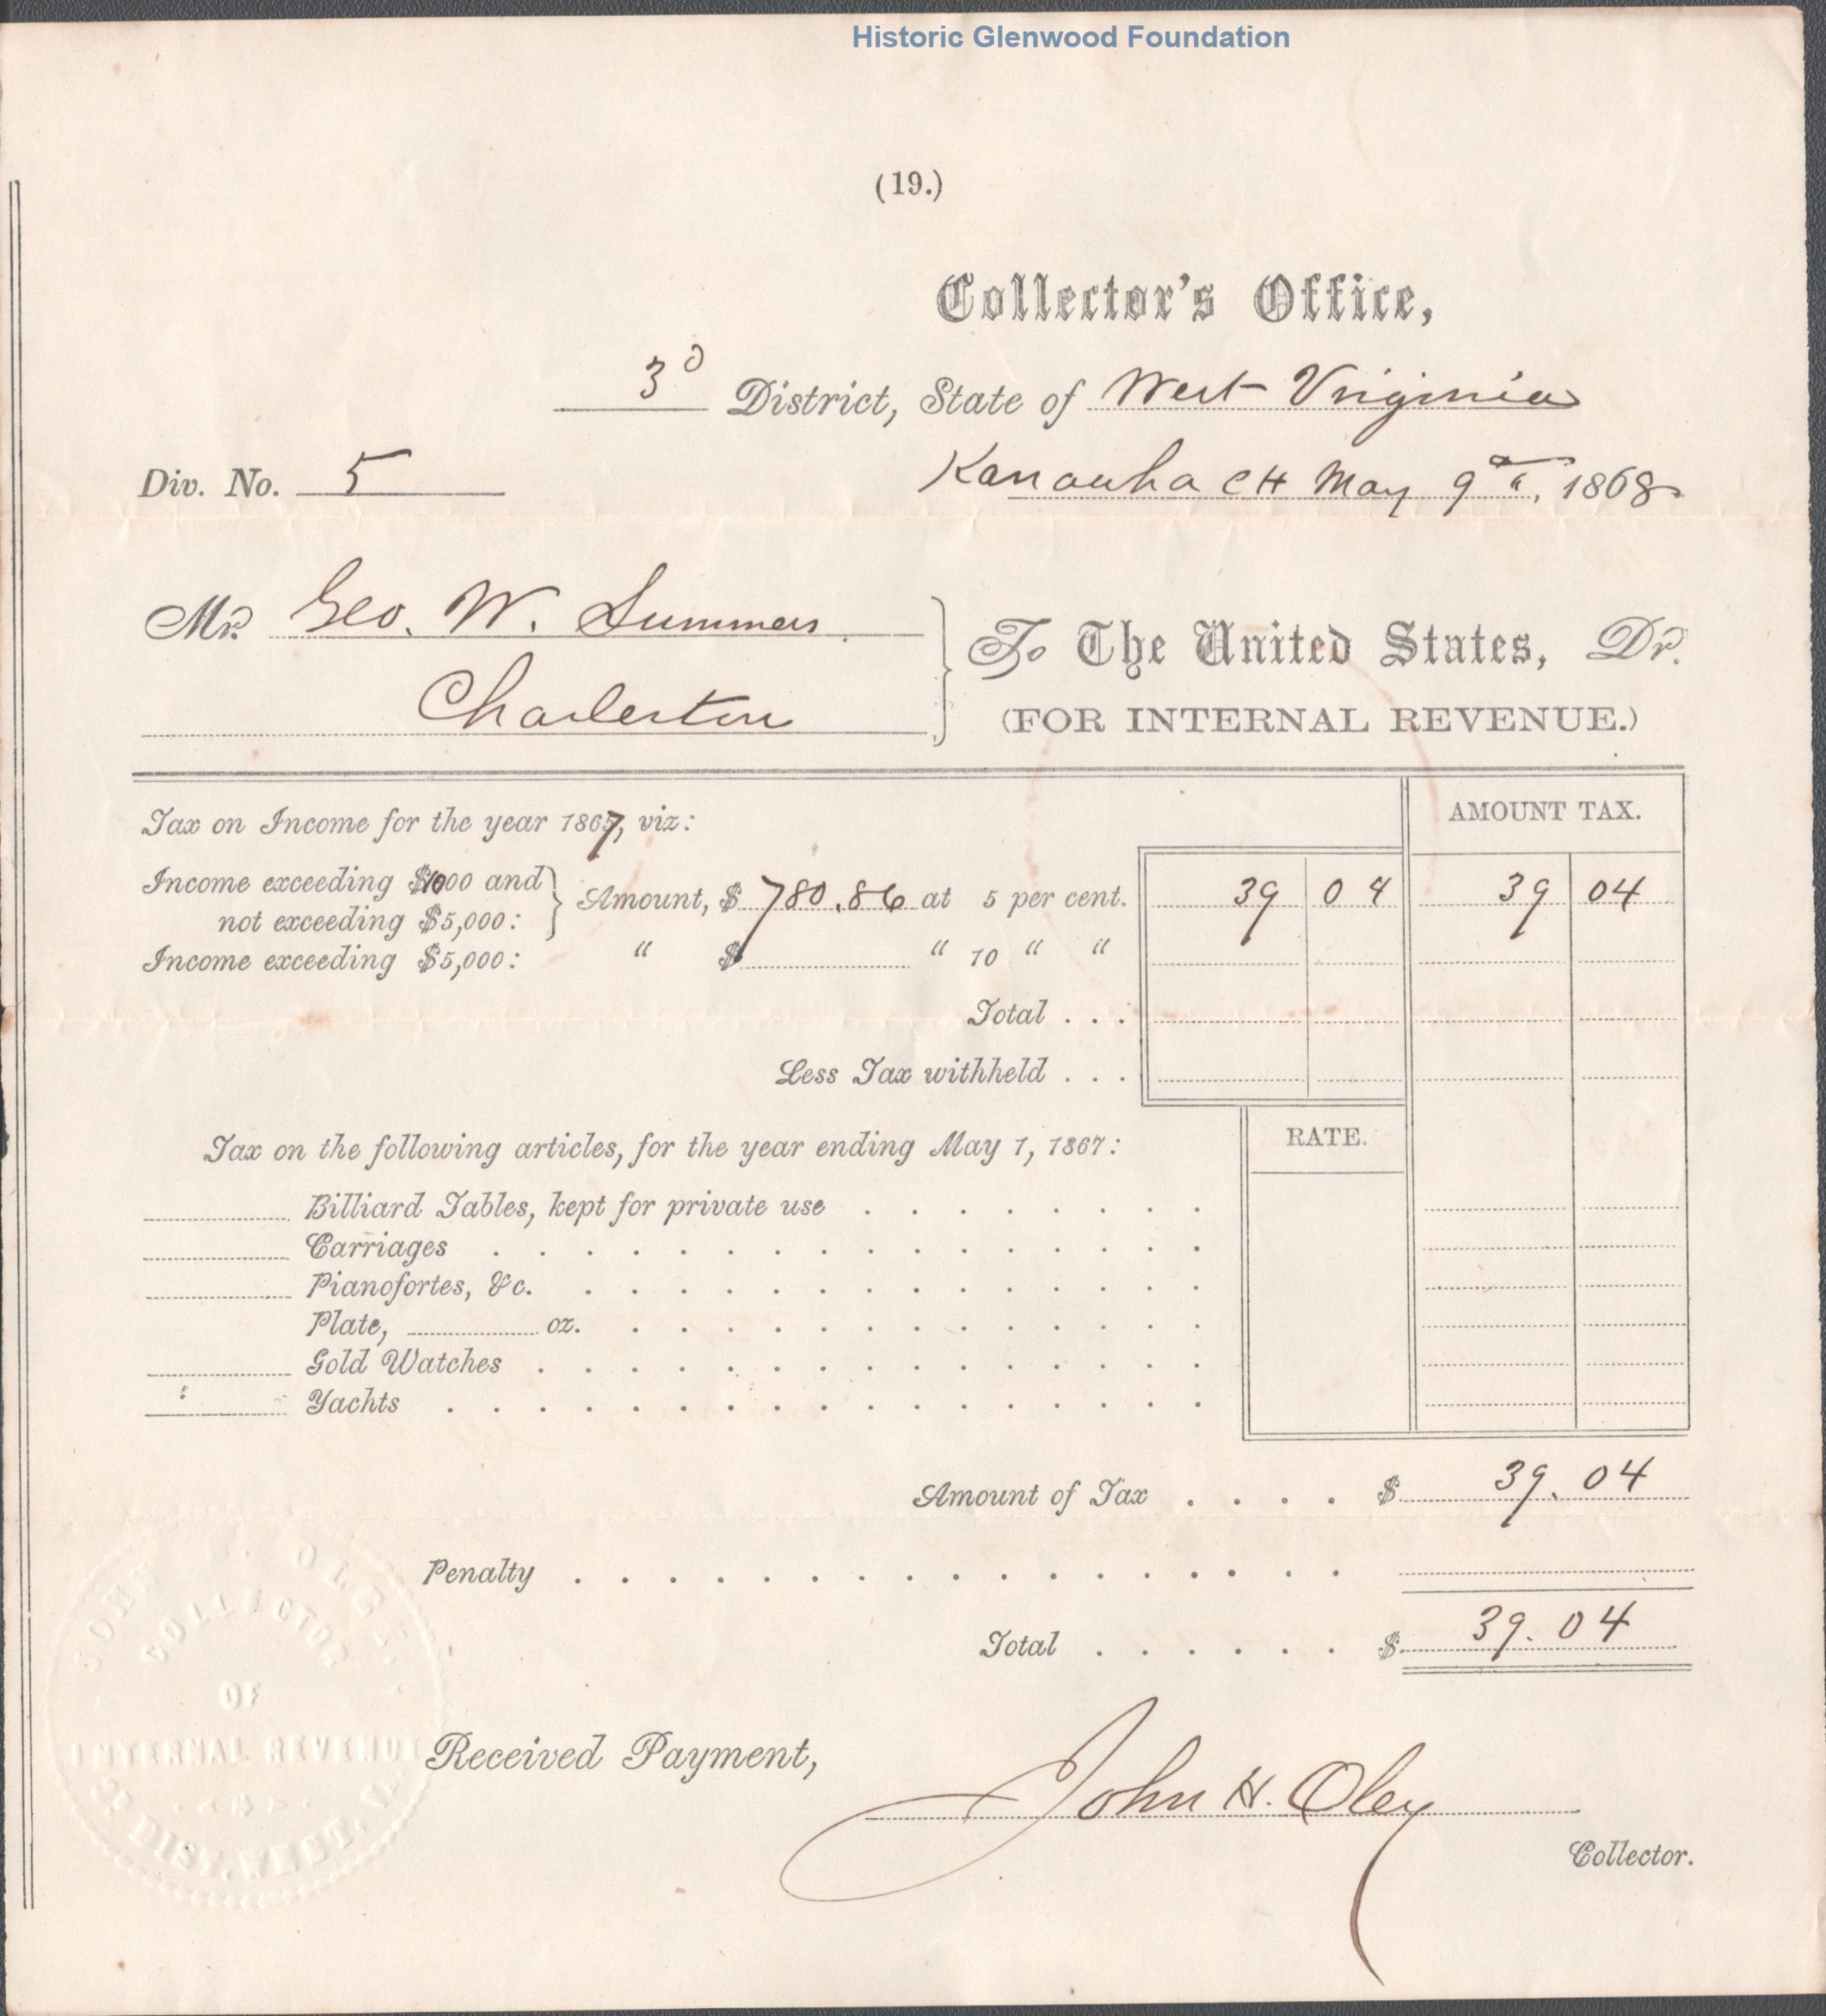 Historic Glenwood Foundation
(19.)
Collector's Office,
3d District, State of West Virginia
Div. No. 5
Kanawha CH May 9th, 1868
Mr. Geo. W. Summers
Charleston
To The United States, Dr.
(FOR INTERNAL REVENUE.)
AMOUNT TAX.
Tax on Income for the year 1867, viz:
Income exceeding $1000 and
not exceeding $5,000: } Amount, $ 780.86 at 5 per cent. 39 04 39 04
Income exceeding $5,000: " $ " 10 " "
Total . . .
Less Tax withheld . . .
Tax on the following articles, for the year ending May 1, 1867:
RATE.
Billiard Tables, kept for private use
Carriages
Pianofortes, &c.
Plate, oz.
Gold Watches
Yachts
Amount of Tax . . . . $ 39.04
Penalty
Total . . . . . . $ 39.04
Received Payment,
John H. Oley
Collector.
JOHN H. OLEY
COLLECTOR
OF
INTERNAL REVENUE
3D DIST. WEST. VA